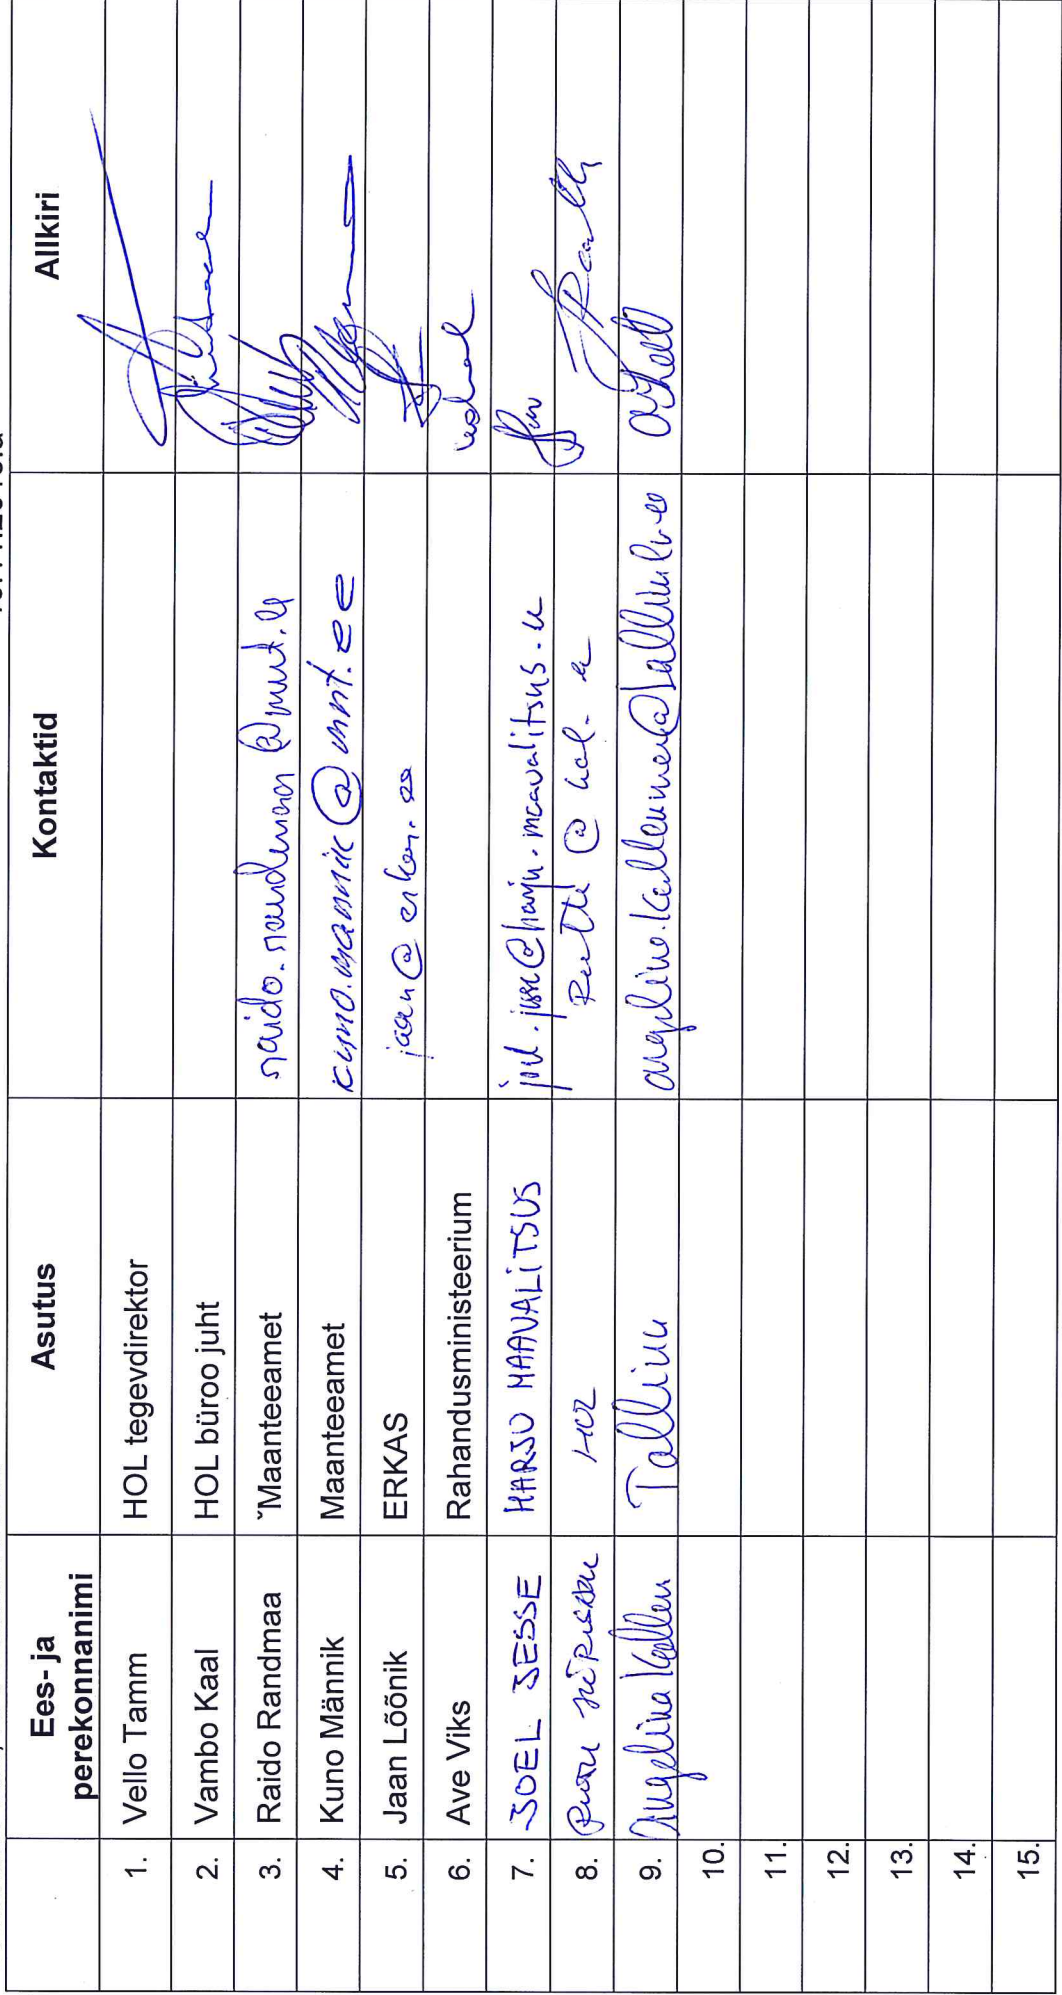 Ees- ja perekonnanimi Asutus Kontaktid Allkiri
1. Vello Tamm HOL tegevdirektor
2. Vambo Kaal HOL büroo juht
3. Raido Randmaa Maanteeamet raido.randmaa@mnt.ee
4. Kuno Männik Maanteeamet kuno.mannik@mnt.ee
5. Jaan Lõõnik ERKAS jaan@erkas.ee
6. Ave Viks Rahandusministeerium
7. JOEL JESSE HARJU MAAVALITSUS joel.jesse@harju.maavalitsus.ee
8. @hol.ee
9. Angelina Tallinn
10.
11.
12.
13.
14.
15.